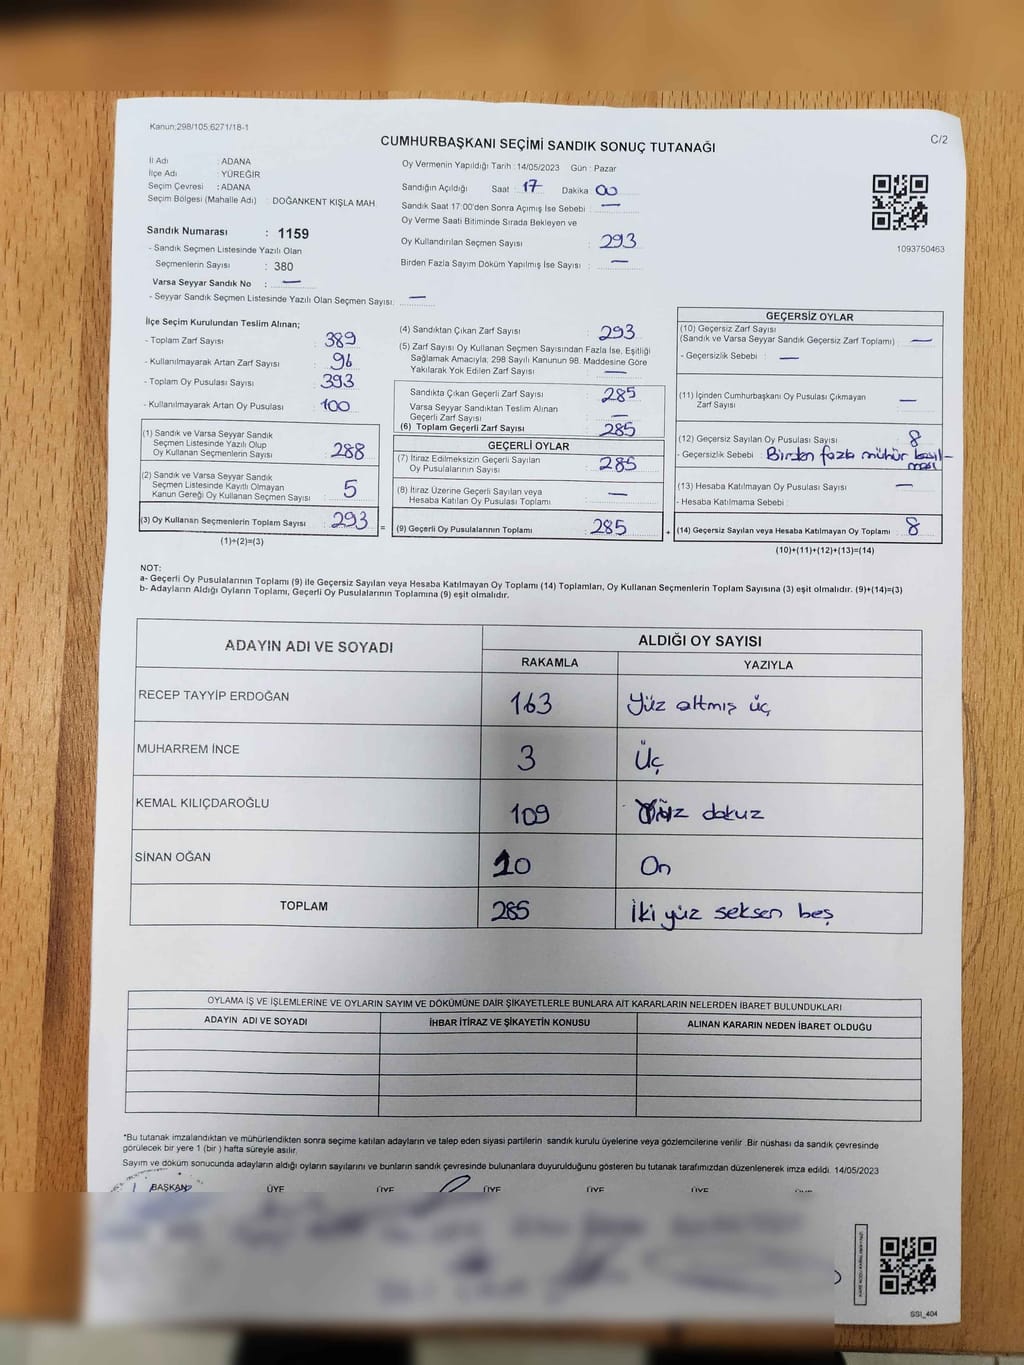 Kanun;298/105;6271/18-1
C/2
CUMHURBAŞKANI SEÇİMİ SANDIK SONUÇ TUTANAĞI
İl Adı : ADANA
İlçe Adı : YÜREĞİR
Seçim Çevresi : ADANA
Seçim Bölgesi (Mahalle Adı) : DOĞANKENT KIŞLA MAH.
Sandık Numarası : 1159
- Sandık Seçmen Listesinde Yazılı Olan
Seçmenlerin Sayısı : 380
Varsa Seyyar Sandık No : —
- Seyyar Sandık Seçmen Listesinde Yazılı Olan Seçmen Sayısı: —
Oy Vermenin Yapıldığı Tarih : 14/05/2023 Gün : Pazar
Sandığın Açıldığı Saat : 17 Dakika 00
Sandık Saat 17:00'den Sonra Açımış İse Sebebi : —
Oy Verme Saati Bitiminde Sırada Bekleyen ve
Oy Kullandırılan Seçmen Sayısı : 293
Birden Fazla Sayım Döküm Yapılmış İse Sayısı : —
1093750463
İlçe Seçim Kurulundan Teslim Alınan;
- Toplam Zarf Sayısı : 389
- Kullanılmayarak Artan Zarf Sayısı : 96
- Toplam Oy Pusulası Sayısı : 393
- Kullanılmayarak Artan Oy Pusulası : 100
(1) Sandık ve Varsa Seyyar Sandık
Seçmen Listesinde Yazılı Olup
Oy Kullanan Seçmenlerin Sayısı : 288
(2) Sandık ve Varsa Seyyar Sandık
Seçmen Listesinde Kayıtlı Olmayan
Kanun Gereği Oy Kullanan Seçmen Sayısı : 5
(3) Oy Kullanan Seçmenlerin Toplam Sayısı : 293 =
(1)+(2)=(3)
(4) Sandıktan Çıkan Zarf Sayısı : 293
(5) Zarf Sayısı Oy Kullanan Seçmen Sayısından Fazla İse, Eşitliği
Sağlamak Amacıyla; 298 Sayılı Kanunun 98. Maddesine Göre
Yakılarak Yok Edilen Zarf Sayısı : —
Sandıkta Çıkan Geçerli Zarf Sayısı : 285
Varsa Seyyar Sandıktan Teslim Alınan
Geçerli Zarf Sayısı : —
(6) Toplam Geçerli Zarf Sayısı : 285
GEÇERLİ OYLAR
(7) İtiraz Edilmeksizin Geçerli Sayılan
Oy Pusulalarının Sayısı : 285
(8) İtiraz Üzerine Geçerli Sayılan veya
Hesaba Katılan Oy Pusulası Toplamı : —
(9) Geçerli Oy Pusulalarının Toplamı : 285 +
GEÇERSİZ OYLAR
(10) Geçersiz Zarf Sayısı
(Sandık ve Varsa Seyyar Sandık Geçersiz Zarf Toplamı) : —
- Geçersizlik Sebebi : —
(11) İçinden Cumhurbaşkanı Oy Pusulası Çıkmayan
Zarf Sayısı : —
(12) Geçersiz Sayılan Oy Pusulası Sayısı : 8
- Geçersizlik Sebebi : Birden fazla mühür basıl-
ması
(13) Hesaba Katılmayan Oy Pusulası Sayısı : —
- Hesaba Katılmama Sebebi :
(14) Geçersiz Sayılan veya Hesaba Katılmayan Oy Toplamı : 8
(10)+(11)+(12)+(13)=(14)
NOT:
a- Geçerli Oy Pusulalarının Toplamı (9) ile Geçersiz Sayılan veya Hesaba Katılmayan Oy Toplamı (14) Toplamları, Oy Kullanan Seçmenlerin Toplam Sayısına (3) eşit olmalıdır. (9)+(14)=(3)
b- Adayların Aldığı Oyların Toplamı, Geçerli Oy Pusulalarının Toplamına (9) eşit olmalıdır.
ADAYIN ADI VE SOYADI
ALDIĞI OY SAYISI
RAKAMLA YAZIYLA
RECEP TAYYİP ERDOĞAN 163 Yüz altmış üç
MUHARREM İNCE 3 Üç
KEMAL KILIÇDAROĞLU 109 Yüz dokuz
SİNAN OĞAN 10 On
TOPLAM 285 İki yüz seksen beş
OYLAMA İŞ VE İŞLEMLERİNE VE OYLARIN SAYIM VE DÖKÜMÜNE DAİR ŞİKAYETLERLE BUNLARA AİT KARARLARIN NELERDEN İBARET BULUNDUKLARI
ADAYIN ADI VE SOYADI İHBAR İTİRAZ VE ŞİKAYETİN KONUSU ALINAN KARARIN NEDEN İBARET OLDUĞU
*Bu tutanak imzalandıktan ve mühürlendikten sonra seçime katılan adayların ve talep eden siyasi partilerin sandık kurulu üyelerine veya gözlemcilerine verilir .Bir nüshası da sandık çevresinde
görülecek bir yere 1 (bir ) hafta süreyle asılır.
Sayım ve döküm sonucunda adayların aldığı oyların sayılarını ve bunların sandık çevresinde bulunanlara duyurulduğunu gösteren bu tutanak tarafımızdan düzenlenerek imza edildi. 14/05/2023
BAŞKAN ÜYE ÜYE ÜYE ÜYE ÜYE
SSI_404